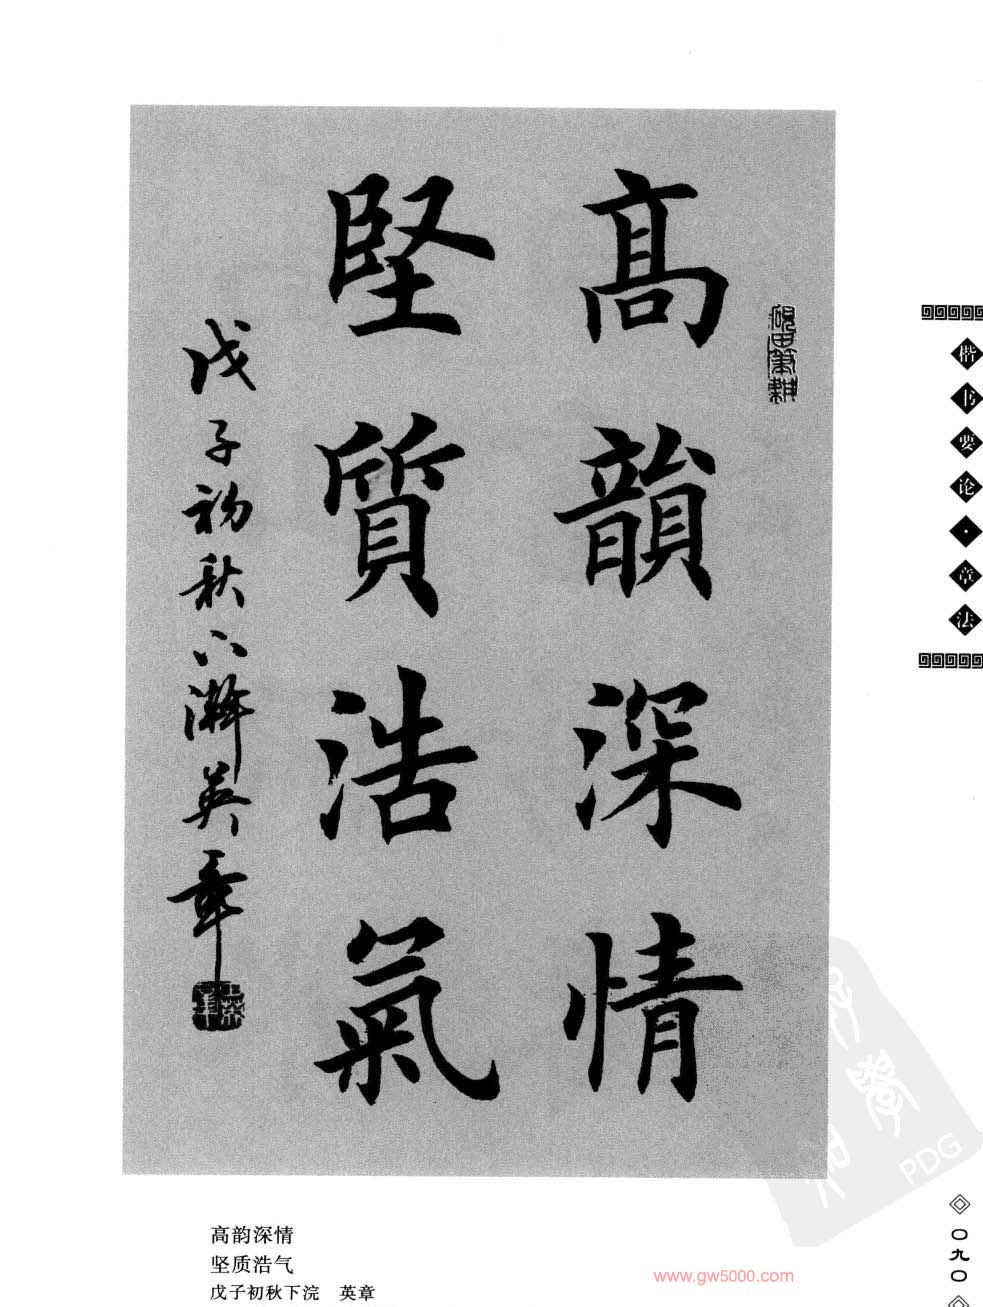 高韻深情
堅質浩氣
戊子初秋下澣英章
硯田筆耕
楷书要论·章法
高韵深情
坚质浩气
戊子初秋下浣　英章
〇九〇
www.gw5000.com
PDG